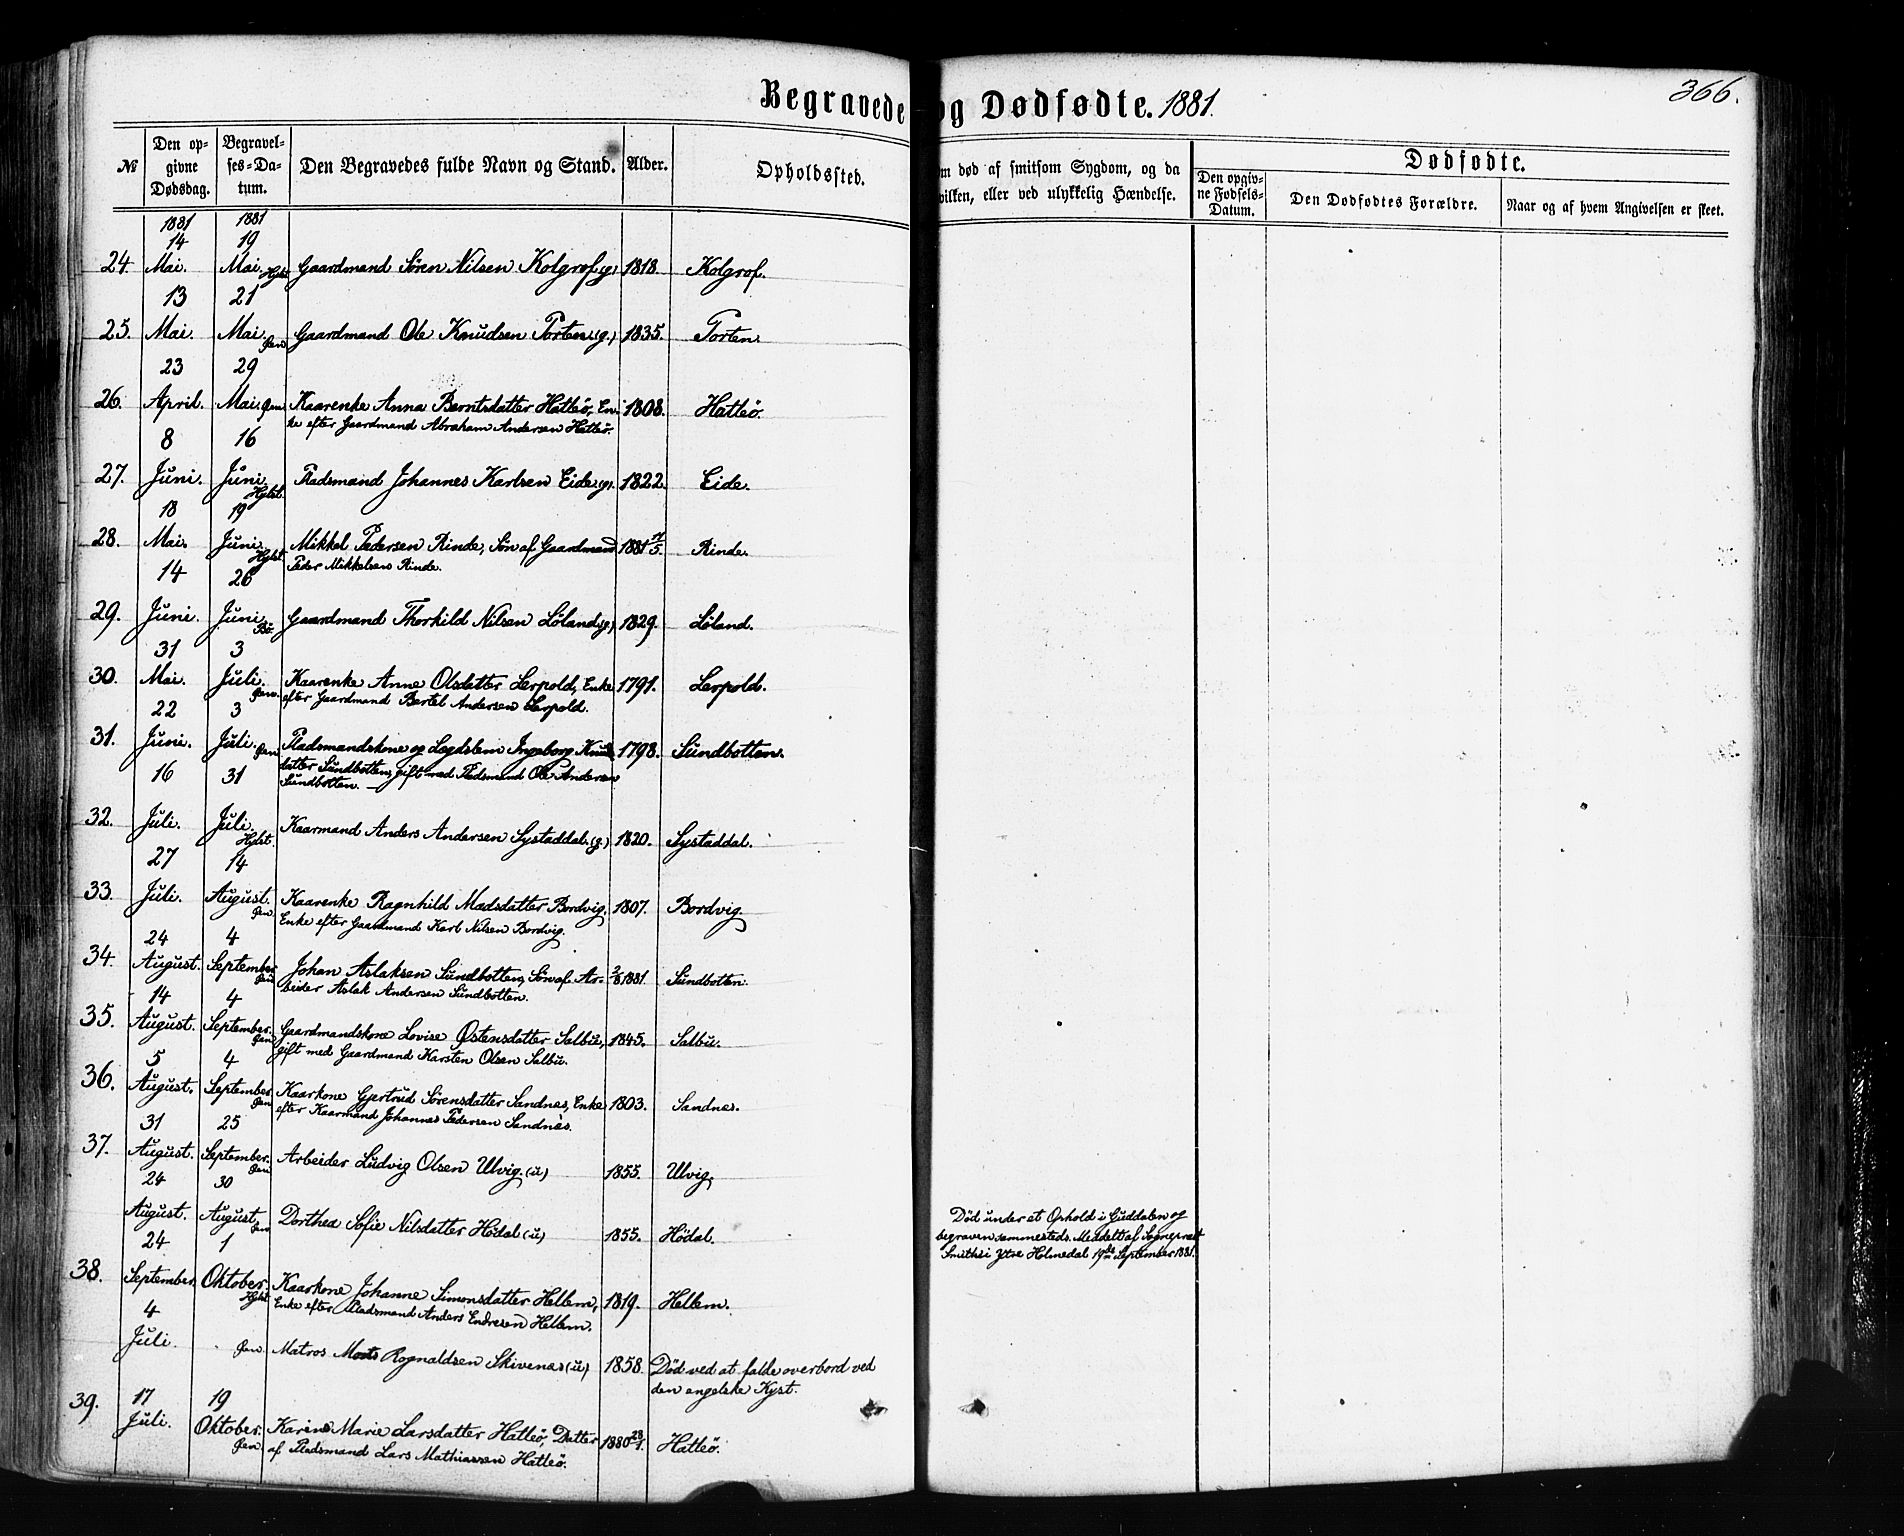 Begravede og Dødfødte. 1881.
366.
No
Den opgivne Dødsdag.
Begravelses-Datum.
Den Begravedes fulde Navn og Stand.
Alder.
Opholdssted.
om død af smitsom Sygdom, og da
hvilken, eller ved ulykkelig Hændelse.
Dødfødte.
Den opgivne Fødsels-Datum.
Den Dødfødtes Forældre.
Naar og af hvem Angivelsen er skeet.
1881 1881
14 19
24. Mai. Mai. Hylst. Gaardmand Sören Nilsen Kolgrof (g) 1818. Kolgrof.
13 21
25. Mai. Mai. Øen Gaardmand Ole Knudsen Porten (g.) 1835. Porten.
23 29
26. April. Mai. Øen Kaarenke Anna Berntsdatter Hatleö, En- 1808. Hatleö.
ke efter Gaardmand Abraham Andersen Hatleö.
8 16
27. Juni. Juni. Hylst. Pladsmand Johannes Karlsen Eide (g). 1822. Eide.
18 19
28. Mai. Juni. Hylst. Mikkel Pedersen Rinde, Sön af Gaardmand 1881 /5. Rinde.
Peder Mikkelsen Rinde.
14 26
29. Juni. Juni. Bö. Gaardmand Thorkild Nilsen Löland (g.) 1829. Löland.
31 3
30. Mai. Juli. Øen. Kaarenke Anne Olsdatter Lerpold, Enke 1791. Lerpold.
efter Gaardmand Bertel Andersen Lerpold.
22 3
31. Juni. Juli. Øen Pladsmandskone og Lægdslem Ingeborg Knuds- 1798. Sundbotten.
datter Sundbotten, gift med Pladsmand Ole Andersen
Sundbotten.
16 31
32. Juli. Juli. Hylst. Kaarmand Anders Andersen Systaddal. (g.) 1820. Systaddal.
27 14
33. Juli. August. Øen. Kaarenke Ragnhild Madsdatter Bordvig, 1807. Bordvig.
Enke efter Gaardmand Karl Nilsen Bordvig.
24 4
34. August. September Øen Johan Aslaksen Sundbotten, Sön af Ar- 2/8 1881. Sundbotten.
beider Aslak Andersen Sundbotten.
14 4
35. August. September. Øen Gaardmandskone Lovise Østensdatter Salbu, 1845. Salbu.
gift med Gaardmand Karsten Olsen Salbu.
5 4
36. August. September. Øen Kaarkone Gjertrud Sörensdatter Sandnes, Enke 1803. Sandnes.
efter Kaarmand Johannes Pedersen Sandnes.
31 25
37. August. September. Øen Arbeider Ludvig Olsen Ulvig. (u) 1855. Ulvig.
24 30
August. August. Øen Dorthea Sofie Nilsdatter Hödal (u) 1855. Hödal.
Död under et Ophold i Guddalen og
begraven sammesteds. Meddelt af Sognepræst
Smith i Ytre Holmedal 19de September 1881.
24 1
38. September. Oktober. Hylst. Kaarkone Johanne Simonsdatter Hellem, 1819. Hellem.
Enke efter Pladsmand Anders Endresen Hellem.
4
Juli. Øen Matros Rognaldsen Skivenes (u) 1858. Död ved at falde overbord ved
den engelske Kyst.
17 19
39. Juli. Oktober. Øen. Karine Marie Larsdatter Hatleö, Datter 1880 28/1. Hatleö.
af Pladsmand Lars Mathiassen Hatleö.